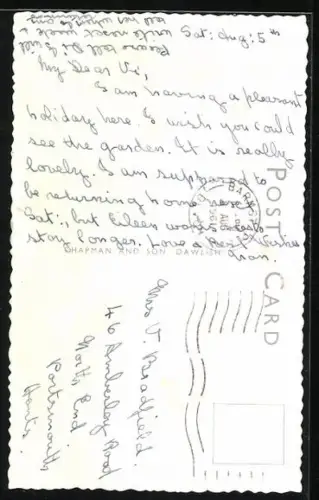 Sat: Aug: 5th
Please tell Di I will
write next week &
tell her
My Dear Vi,
I am having a pleasant
holiday here. I wish you could
see the garden. It is really
lovely. I am supposed to
be returning home next
Sat:, but Eileen wants me to
stay longer. Love & Best Wishes
Gran.
POST CARD
CHAPMAN AND SON DAWLISH
Mrs V. Bradfield.
46 Amberley Road
North End
Portsmouth
Hants.